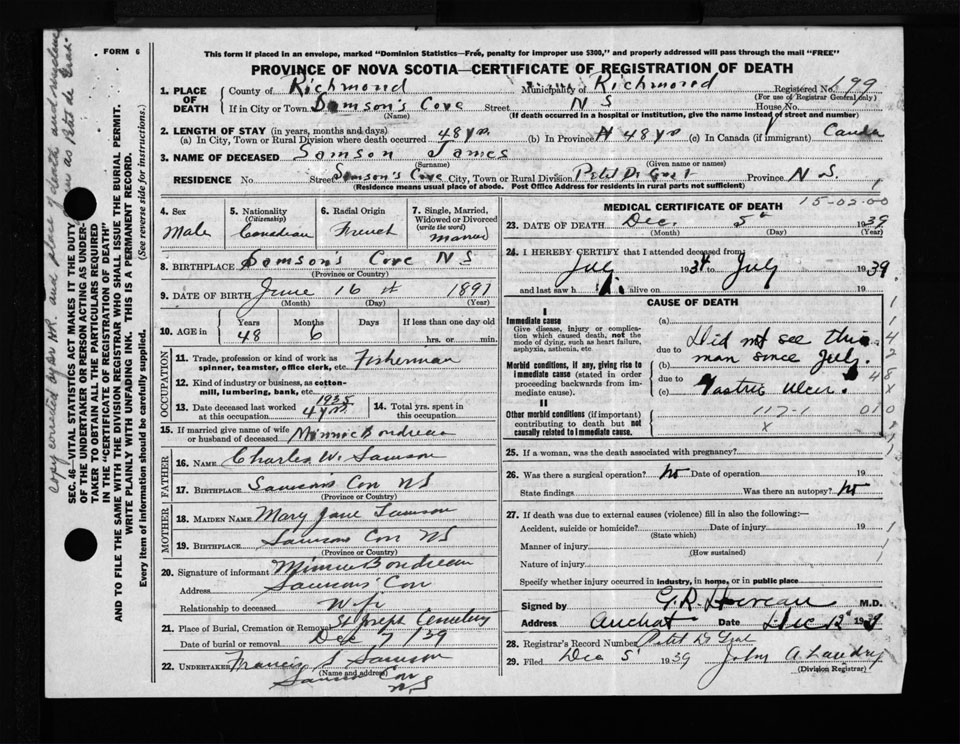 FORM 6
This form if placed in an envelope, marked "Dominion Statistics—Free, penalty for improper use $300," and properly addressed will pass through the mail "FREE"
PROVINCE OF NOVA SCOTIA—CERTIFICATE OF REGISTRATION OF DEATH
1. PLACE OF DEATH
County of Richmond Municipality of Richmond Registered No. 199
(For use of Registrar General only)
If in City or Town Samson's Cove Street N S House No.
(Name) (If death occurred in a hospital or institution, give the name instead of street and number)
2. LENGTH OF STAY (in years, months and days)
(a) In City, Town or Rural Division where death occurred 48 yrs. (b) In Province 48 yrs (c) In Canada (if immigrant) Canda
3. NAME OF DECEASED Samson James
(Surname) (Given name or names)
RESIDENCE No. Street Samson's Cove City, Town or Rural Division Petit De Grat Province N S.
(Residence means usual place of abode. Post Office Address for residents in rural parts not sufficient)
4. Sex Male
5. Nationality (Citizenship) Canadian
6. Racial Origin French
7. Single, Married, Widowed or Divorced (write the word)
8. BIRTHPLACE Samson's Cove N S
(Province or Country)
9. DATE OF BIRTH June 16th 1891
(Month) (Day) (Year)
10. AGE in Years 48 Months 6 Days If less than one day old hrs. or min.
OCCUPATION
11. Trade, profession or kind of work as spinner, teamster, office clerk, etc. Fisherman
12. Kind of industry or business, as cotton-mill, lumbering, bank, etc.
13. Date deceased last worked at this occupation 1935 4 yrs.
14. Total yrs. spent in this occupation
15. If married give name of wife or husband of deceased Minnie Boudreau
FATHER
16. NAME Charles W. Samson
17. BIRTHPLACE Samsons Cove NS
(Province or Country)
MOTHER
18. MAIDEN NAME Mary Jane Samson
19. BIRTHPLACE Samsons Cove NS
(Province or Country)
20. Signature of informant Minnie Boudreau
Address Samsons Cove
Relationship to deceased Wife
21. Place of Burial, Cremation or Removal St Joseph Cemetery
Date of burial or removal Dec 7/39
22. UNDERTAKER Francis S Samson
(Name and address)
Samson Cove
N S
1
15-02-00
MEDICAL CERTIFICATE OF DEATH
23. DATE OF DEATH Dec. 5th 1939
(Month) (Day) (Year)
24. I HEREBY CERTIFY that I attended deceased from:
July 1934 to July 1939
and last saw h alive on 19
CAUSE OF DEATH
I
Immediate cause
Give disease, injury or complication which caused death, not the mode of dying, such as heart failure, asphyxia, asthenia, etc.
(a)
due to Did not see this
(b) man since July.
Morbid conditions, if any, giving rise to immediate cause (stated in order proceeding backwards from immediate cause).
due to
(c) Gastric Ulcer.
II
Other morbid conditions (if important) contributing to death but not causally related to immediate cause.
117-1
X
25. If a woman, was the death associated with pregnancy?
26. Was there a surgical operation? No Date of operation 19
State findings Was there an autopsy? No
27. If death was due to external causes (violence) fill in also the following:—
Accident, suicide or homicide? Date of injury 19
(State which)
Manner of injury
(How sustained)
Nature of injury
Specify whether injury occurred in industry, in home, or in public place
Signed by M.D.
Address Arichat Date Dec 12 1939
28. Registrar's Record Number Petit De Grat
29. Filed Dec 5 1939 John A. Landry
(Division Registrar)
SEC. 46—VITAL STATISTICS ACT MAKES IT THE DUTY OF THE UNDERTAKER OR PERSON ACTING AS UNDERTAKER TO OBTAIN ALL THE PARTICULARS REQUIRED IN THE "CERTIFICATE OF REGISTRATION OF DEATH" AND TO FILE THE SAME WITH THE DIVISION REGISTRAR WHO SHALL ISSUE THE BURIAL PERMIT.
WRITE PLAINLY WITH UNFADING INK. THIS IS A PERMANENT RECORD.
Every item of information should be carefully supplied. (See reverse side for instructions.)